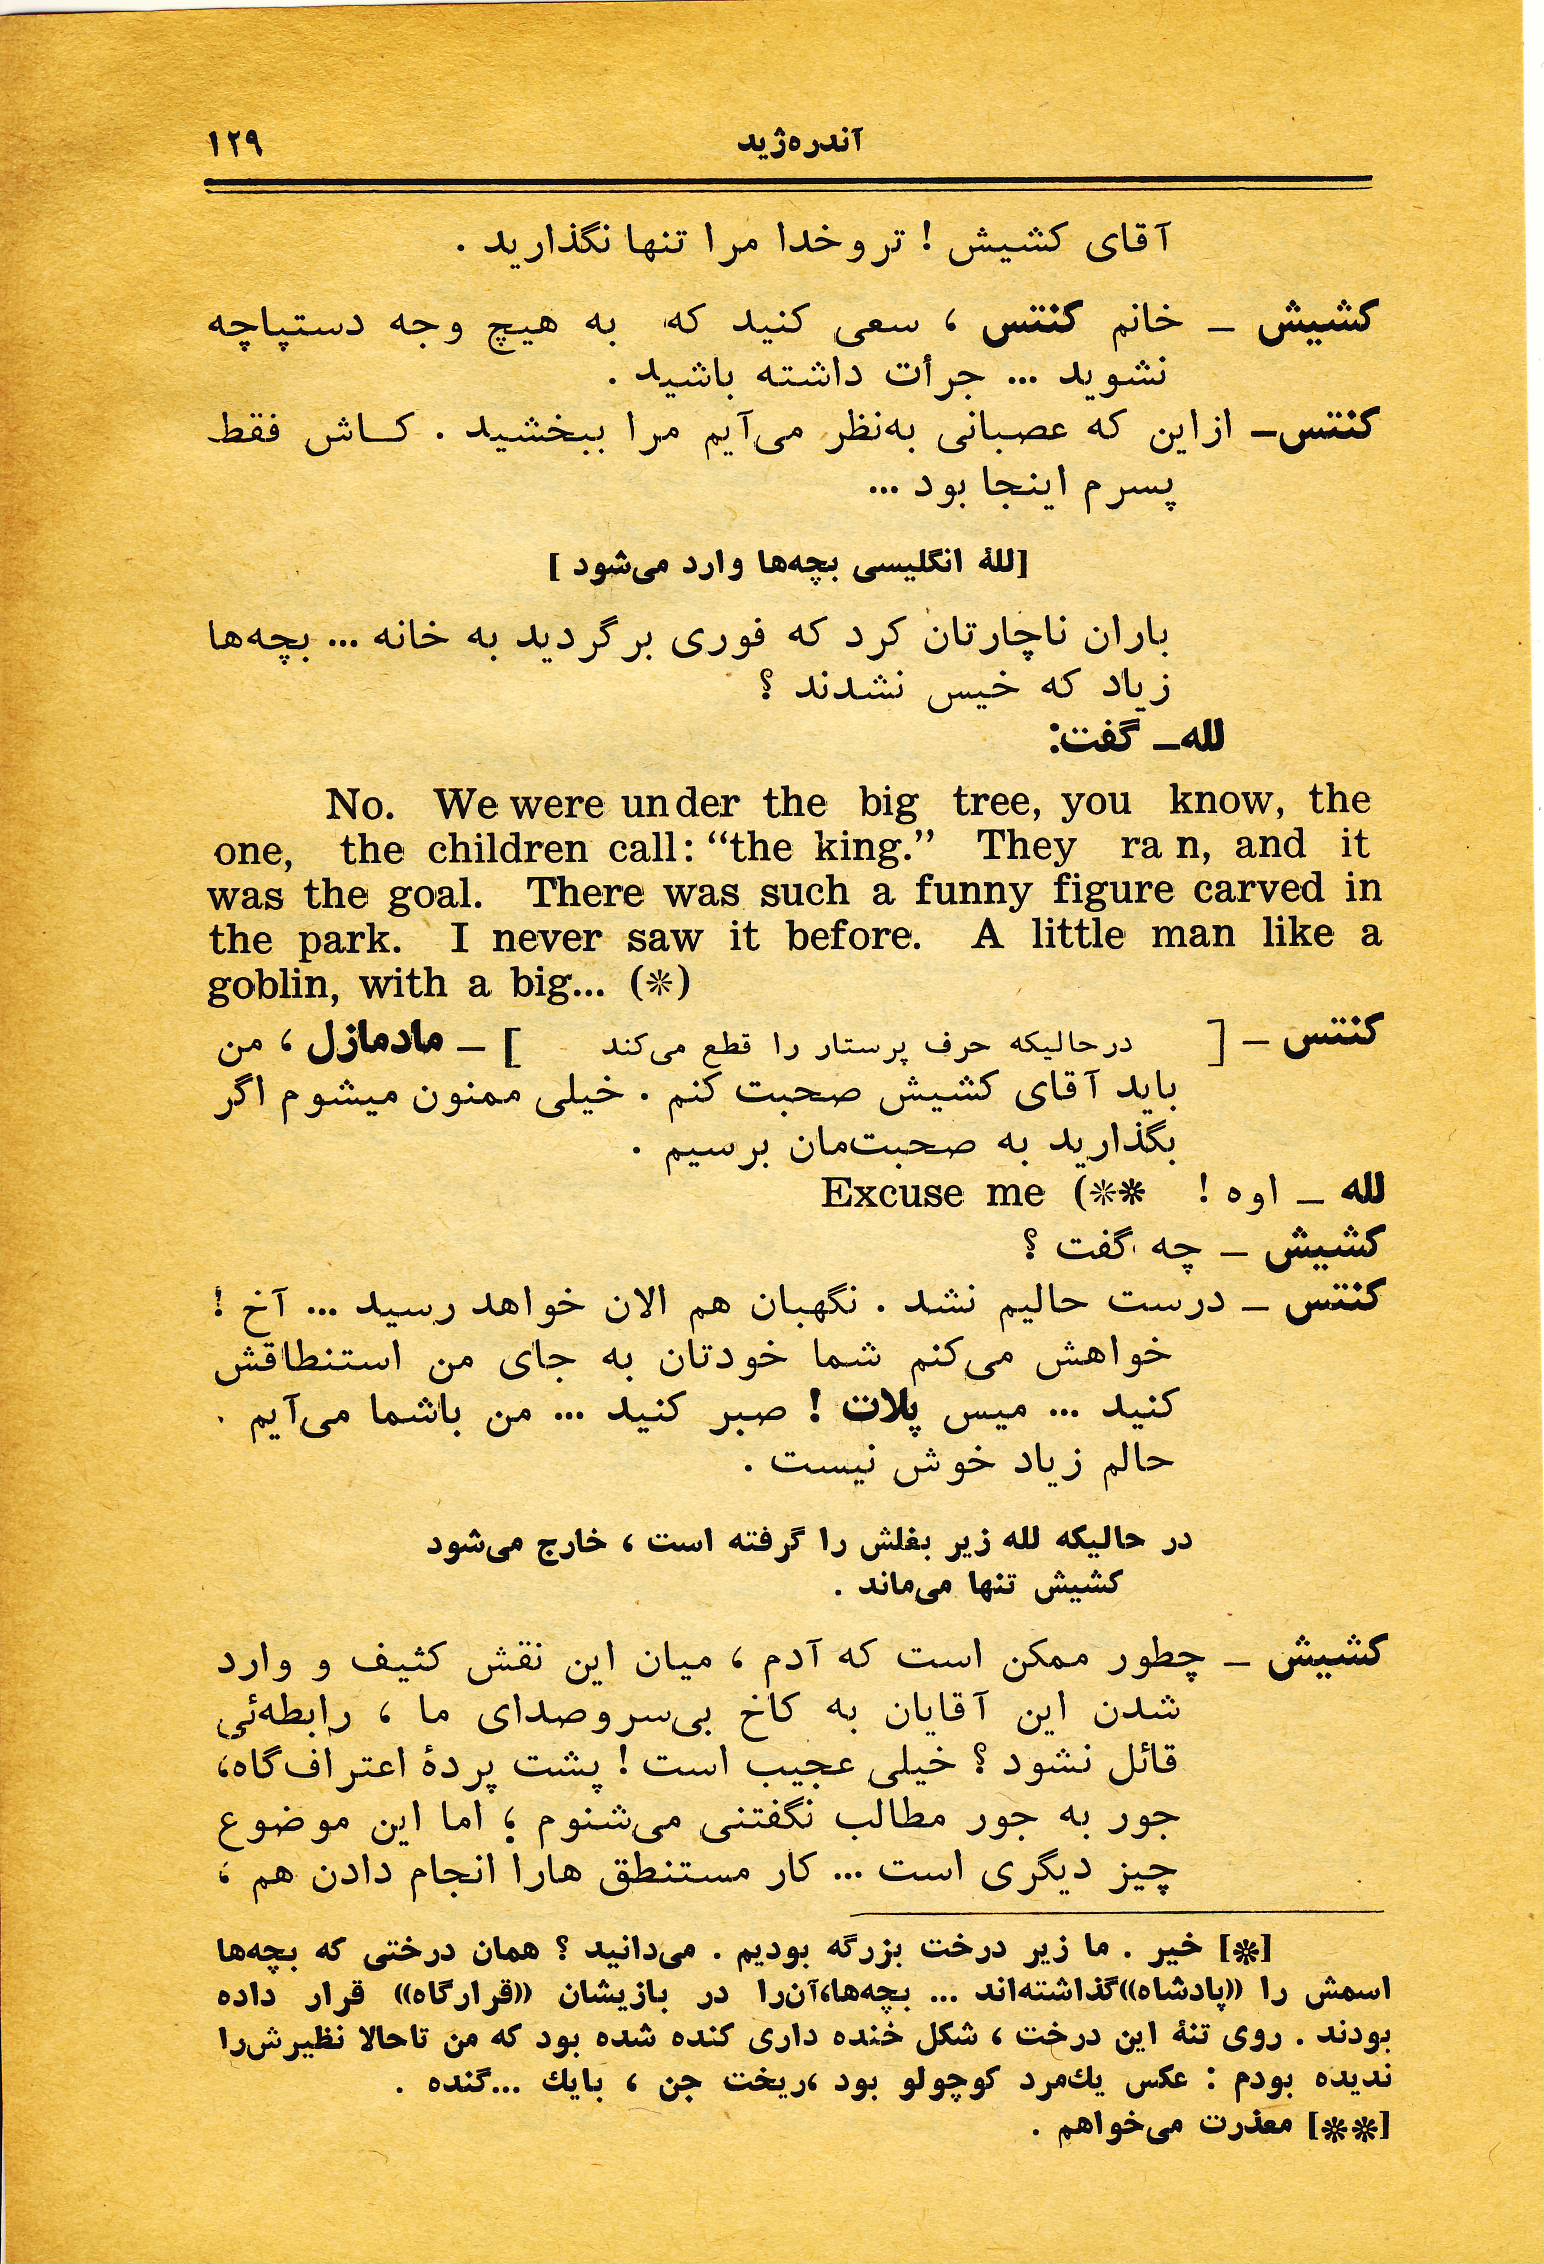 آندره‌ژید ۱۲۹
آقای کشیش ! تروخدا مرا تنها نگذارید .
کشیش ـ خانم کنتس ، سعی کنید که به هیچ وجه دستپاچه
نشوید ... جرأت داشته باشید .
کنتس ـ ازاین که عصبانی به‌نظر می‌آیم مرا ببخشید . کاش فقط
پسرم اینجا بود ...
[للهٔ انگلیسی بچه‌ها وارد می‌شود ]
باران ناچارتان کرد که فوری برگردید به خانه ... بچه‌ها
زیاد که خیس نشدند ؟
لله ـ گفت:
No. We were under the big tree, you know, the
one, the children call: “the king.” They ra n, and it
was the goal. There was such a funny figure carved in
the park. I never saw it before. A little man like a
goblin, with a big... (※)
کنتس ـ [ درحالیکه حرف پرستار را قطع می‌کند ] ـ مادمازل ، من
باید آقای کشیش صحبت کنم . خیلی ممنون میشوم اگر
بگذارید به صحبت‌مان برسیم .
لله ـ اوه ! Excuse me (※※
کشیش ـ چه گفت ؟
کنتس ـ درست حالیم نشد . نگهبان هم الان خواهد رسید ... آخ !
خواهش می‌کنم شما خودتان به جای من استنطاقش
کنید ... میس پلات ! صبر کنید ... من باشما می‌آیم .
حالم زیاد خوش نیست .
در حالیکه لله زیر بغلش را گرفته است ، خارج می‌شود
کشیش تنها می‌ماند .
کشیش ـ چطور ممکن است که آدم ، میان این نقش کثیف و وارد
شدن این آقایان به کاخ بی‌سروصدای ما ، رابطه‌ئی
قائل نشود ؟ خیلی عجیب است ! پشت پردهٔ اعتراف‌گاه،
جور به جور مطالب نگفتنی می‌شنوم ؛ اما این موضوع
چیز دیگری است ... کار مستنطق هارا انجام دادن هم ،
[※] خیر . ما زیر درخت بزرگه بودیم . می‌دانید ؟ همان درختی که بچه‌ها
اسمش را «پادشاه»گذاشته‌اند ... بچه‌ها،آن‌را در بازیشان «قرارگاه» قرار داده
بودند . روی تنهٔ این درخت ، شکل خنده داری کنده شده بود که من تاحالا نظیرش‌را
ندیده بودم : عکس یك‌مرد کوچولو بود ،ریخت جن ، بایك ...گنده .
[※※] معذرت می‌خواهم .